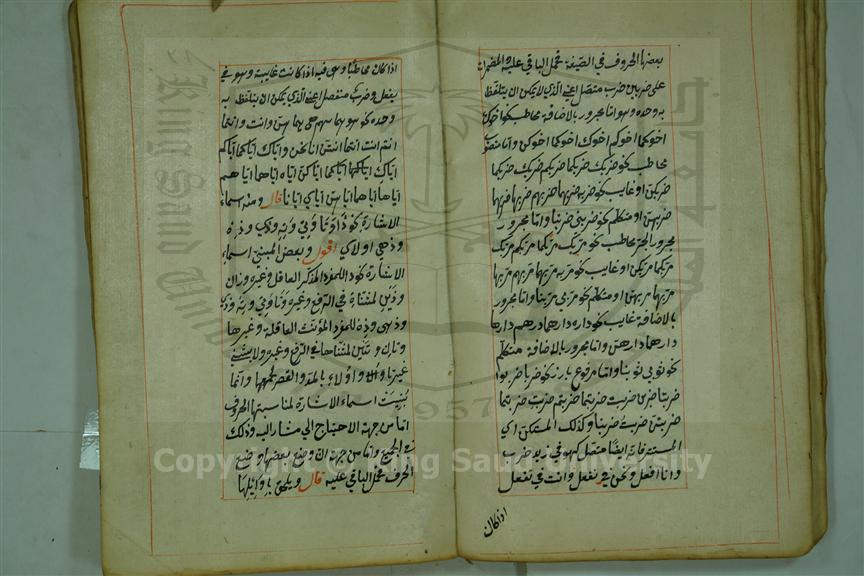 بعضها الحروف في الصيغة فحمل الباقي عليه والمضمرات
على ضربين ضرب متصل اعني الذي لا يمكن ان يتلفظ
به وحده وهو اما مجرور بالاضافة مخاطب كواخوك
اخوكما اخوكم اخوك اخوكما اخوكن واما منصوب
مخاطب نحو ضربك ضربكما ضربكم ضربك ضربكما
ضربكن او غايب نحو ضربه ضربهما ضربهم ضربها ضربهما
ضربهن او متكلم نحو ضربني ضربنا واما مجرور
مجرور الجر مخاطب نحو مر بك مر بكما مر بكم مر بك
مر بكما مر بكن او غايب نحو مر به مر بهما مر بهم مر بها
مر بهما مر بهن او متكلم نحو مر بي مر بنا واما مجرور
بالاضافة غايب نحو داره دارهما دارهم دارها
دارهما دارهن واما مجرور بالاضافة متكلم
نحو ثوبي ثوبنا واما مرفوع بارز نحو ضربا ضربوا
ضربتا ضربن ضربت ضربتما ضربتم ضربت ضربتما
ضربتن ضربت ضربنا وكذلك المستكن اي
المستتر فانه ايضا متصل كهو في زيد ضرب
وانا افعل ونحن في نفعل وانت في تفعل
اذا كان
اذا كان مخاطبا وهي فيه اذا كانت غايبة وهو في
يفعل وضرب منفصل اعني الذي يمكن ان يتلفظ به
وحده نحو هو هما هم هي هما هن وانت وانتما
انتم انت انتما انتن انا نحن واياك اياكما اياكم
اياك اياكما اياكن اياه اياهما اياهم
اياها اياهما اياهن اياي ايانا قال ومنه اسماء
الاشارة نحو ذا وتا وتي وته وذي وذه
وذهي اولاي اقول وبعض المبني اسماء
الاشارة نحو ذا للمفرد المذكر العاقل وغيره وذان
وذين لمثناه في الرفع وغيره وتا وتي وته وذي
وذهي وذه للمفرد المؤنث العاقلة وغيرها
وتان وتين لمثناها في الرفع وغيره ولا يثنى
غير تا واولاء بالمد والقصر لجمعها وانما
بنيت اسماء الاشارة لمناسبتها الحروف
اما من جهة الاحتياج الى مشار اليه وذلك
في الجميع واما من جهة ان وضع بعضها وضع
الحرف فحمل الباقي عليه قال ويلحق باوايلها
Copyright © King Saud University
King Saud University
1957